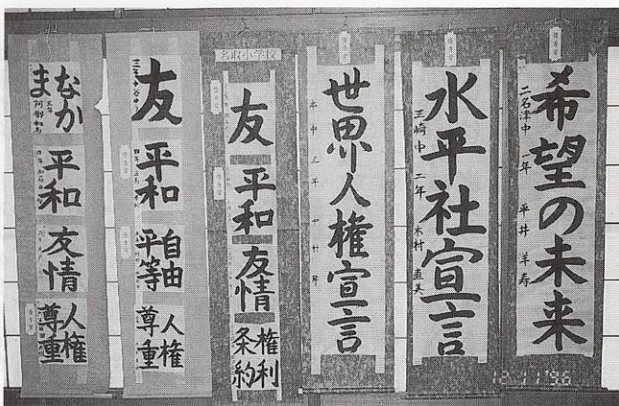 希望の未来
二石津中 一年 平井 洋寿
水平社宣言
二年 木村 直美
世界人権宣言
三年
名取小学校
友
平和
友情
権利
条約
友
平和
自由
平等
人権
尊重
なか
ま
平和
友情
人権
尊重
12 11'96